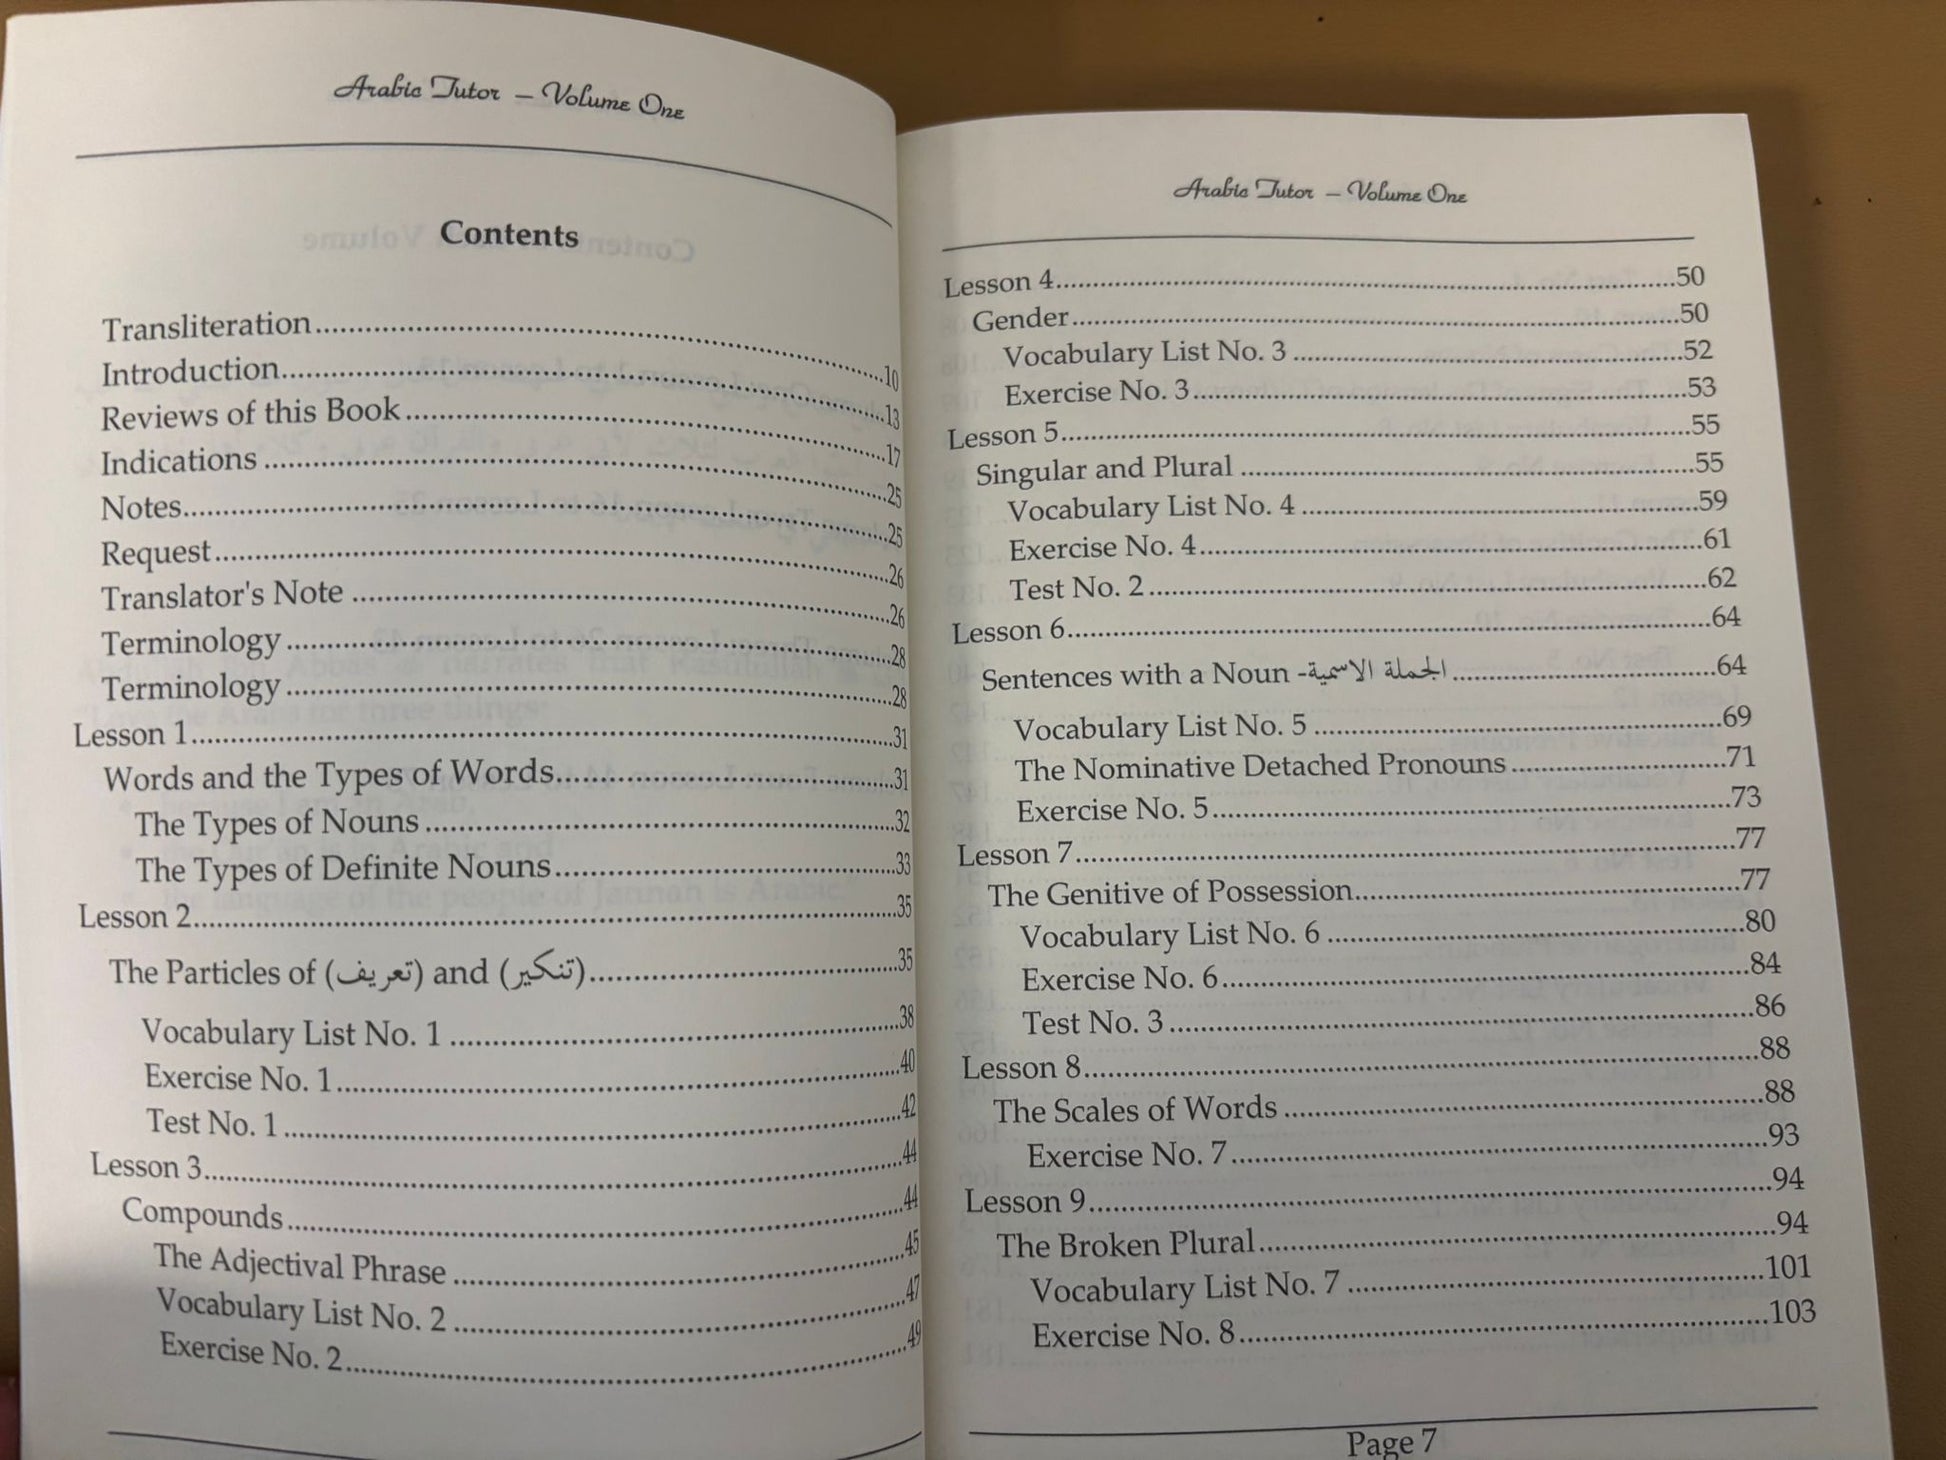 Arabic Tutor – Volume One
Contents
Transliteration..........10
Introduction..........13
Reviews of this Book..........17
Indications..........25
Notes..........25
Request..........26
Translator's Note..........26
Terminology..........28
Terminology..........28
Lesson 1..........31
Words and the Types of Words..........31
The Types of Nouns..........32
The Types of Definite Nouns..........33
Lesson 2..........35
The Particles of (تعريف) and (تنكير)..........35
Vocabulary List No. 1..........38
Exercise No. 1..........40
Test No. 1..........42
Lesson 3..........44
Compounds..........44
The Adjectival Phrase..........45
Vocabulary List No. 2..........47
Exercise No. 2..........49
Arabic Tutor – Volume One
Lesson 4..........50
Gender..........50
Vocabulary List No. 3..........52
Exercise No. 3..........53
Lesson 5..........55
Singular and Plural..........55
Vocabulary List No. 4..........59
Exercise No. 4..........61
Test No. 2..........62
Lesson 6..........64
Sentences with a Noun -الجملة الاسمية..........64
Vocabulary List No. 5..........69
The Nominative Detached Pronouns..........71
Exercise No. 5..........73
Lesson 7..........77
The Genitive of Possession..........77
Vocabulary List No. 6..........80
Exercise No. 6..........84
Test No. 3..........86
Lesson 8..........88
The Scales of Words..........88
Exercise No. 7..........93
Lesson 9..........94
The Broken Plural..........94
Vocabulary List No. 7..........101
Exercise No. 8..........103
Page 7